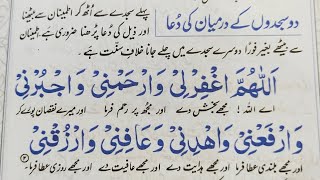 دو سجدوں کے درمیان کی دُعا
پہلے سجدے سے اُٹھ کر اطمینان سے بیٹھنا
اور ذیل کی دُعا پڑھنا ضروری ہے، اطمینان
سے بیٹھے بغیر فوراً دوسرے سجدے میں چلے جانا خلافِ سنّت ہے
اَللّٰهُمَّ اغْفِرْلِىْ وَارْحَمْنِىْ وَاجْبُرْنِىْ
اے اللہ! مجھے بخش دے اور مجھ پر رحم فرما اور میرے نقصان پورے کر
وَارْفَعْنِىْ وَاهْدِنِىْ وَعَافِنِىْ وَارْزُقْنِىْ
اور مجھے بلندی عطا فرما اور مجھے ہدایت دے اور مجھے عافیت دے اور مجھے روزی عطا فرما